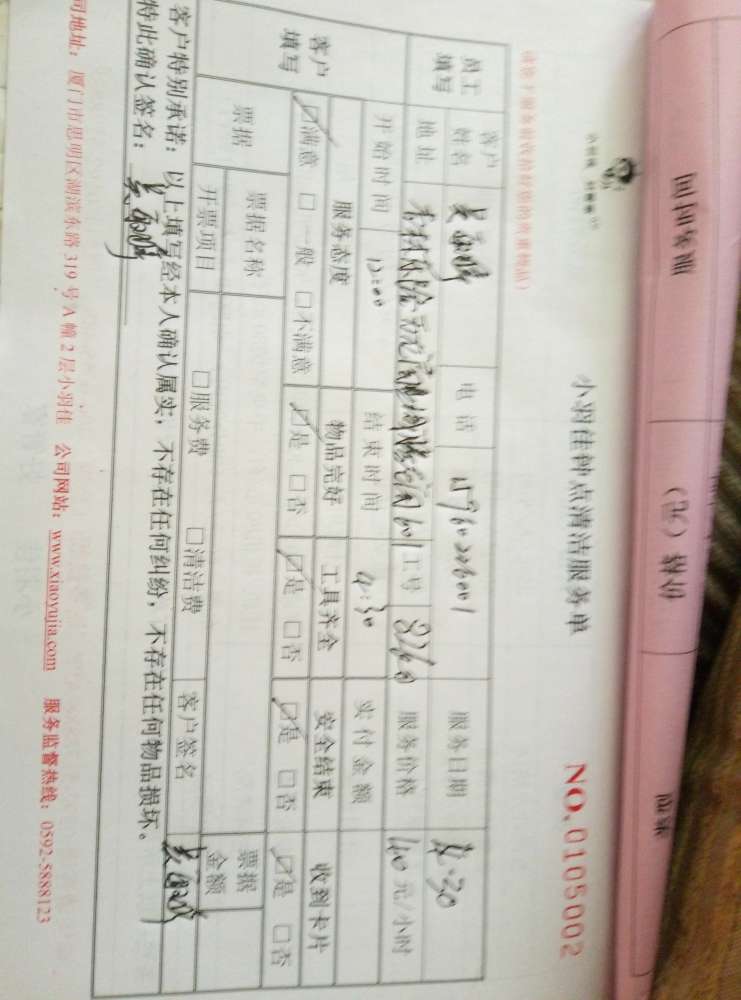 小羽佳钟点清洁服务单
NO.0105002
员工填写 客户姓名 电话 15960206001 服务日期 4.30
地址 601 工号 服务价格 40元/小时
开始时间 12:00 结束时间 4:30 实付金额
客户填写 服务态度 物品完好 工具齐全 安全结束 收到卡片
☑满意 □一般 □不满意 ☑是 □否 ☑是 □否 ☑是 □否 ☑是 □否
票据 票据名称 票据金额
开票项目 □服务费 □清洁费 客户签名
客户特别承诺：以上填写经本人确认属实，不存在任何纠纷，不存在任何物品损坏。
特此确认签名：
司地址：厦门市思明区湖滨东路319号A幢2层小羽佳 公司网站：www.xiaoyujia.com 服务监督热线：0592-5888123